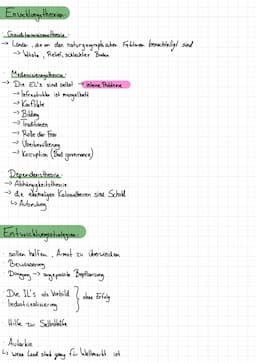 Entwicklungstheorien
Geodeterminismustheorie
→ Länder, die an den naturgeographischen Faktoren benachteiligt sind
→ Wüste, Relief, schlechter Boden
Modernisierungstheorie
→ Die EL's sind selbst → interne Probleme
→ Infrastruktur ist mangelhaft
→ Konflikte
→ Bildung
→ Traditionen
→ Rolle der Frau
→ Überbevölkerung
→ Korruption (Bad governance)
Dependenztheorie
→ Abhängigkeitstheorie
→ die ehemaligen Kolonialherren sind Schuld
↳ Ausbeutung
Entwicklungsstrategien
- sollen helfen, Armut zu überwinden
Bewässerung
Düngung → angepasste Bepflanzung
- Die IL's als Vorbild } ohne Erfolg
- Industrialisierung
Hilfe zur Selbsthilfe
- Autarkie
↳ wenn Land ganz für Weltmarkt ist